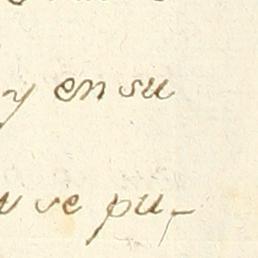 y en su
se pu-